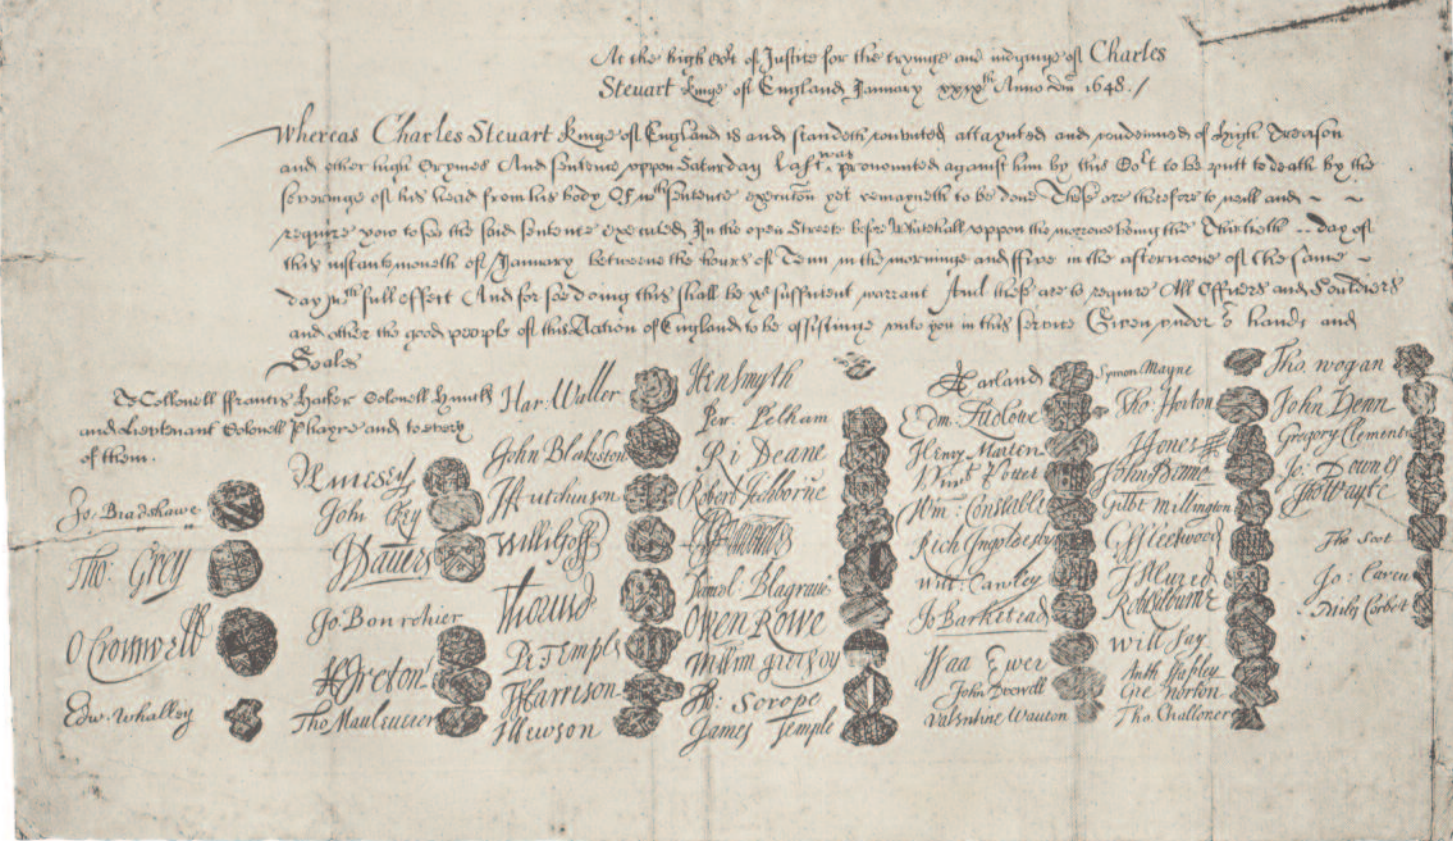 At the high Cot of Justice for the tryinge and iudginge of Charles
Steuart Kinge of England January xxixth Anno Dm 1648./
Whereas Charles Steuart Kinge of England is and standeth convicted attaynted and condemned of High Treason
and other high Crymes And sentence uppon Saturday last was pronounced against him by this Cot to be putt to death by the
severinge of his head from his body Of wch sentence execucon yet remayneth to be done These are therefore to will and
require you to see the said sentence executed In the open Streete before Whitehall uppon the morrowe being the Thirtieth day of
this instante moneth of January betweene the houres of Tenn in the morninge and ffive in the afternoone of the same
day wth full effect And for soe doing this shall be yor sufficient warrant And these are to require All Officers and Souldiers
and other the good people of this Nation of England to be assistinge unto you in this service Given under or hands and
Seales
To Collonell ffrancis Hacker Colonell Huncks
and Lieutenant Colonell Phayre and to every
of them.
Jo Bradshawe
Tho: Grey
O Cromwell
Edw. Whalley
M Livesey
John Okey
J Davers
Jo Bourchier
H Ireton
Tho Mauleverer
Har. Waller
John Blakiston
J Hutchinson
Willi Goff
Pe Temple
T Harrison
J Hewson
Hen Smyth
Per. Pelham
Ri Deane
Robert Tichborne
Daniel Blagrave
Owen Rowe
William Purefoy
Ad: Scrope
James Temple
A Garland
Edm. Ludlowe
Henry Marten
Vint Potter
Wm: Constable
Rich Ingoldesby
Will: Cawley
Jo Barkstead
Isaa Ewer
John Dixwell
Valentine Wauton
Symon Mayne
Tho: Horton
J Jones
John Penne
Gilbt Millington
G ffleetwood
J Alured
Rob Lilburne
Will Say
Anth Stapley
Gre Norton
Tho Challoner
Tho Wogan
John Venn
Gregory Clement
Jo: Downes
Tho Wayte
Tho Scot
Jo: Carew
Miles Corbet